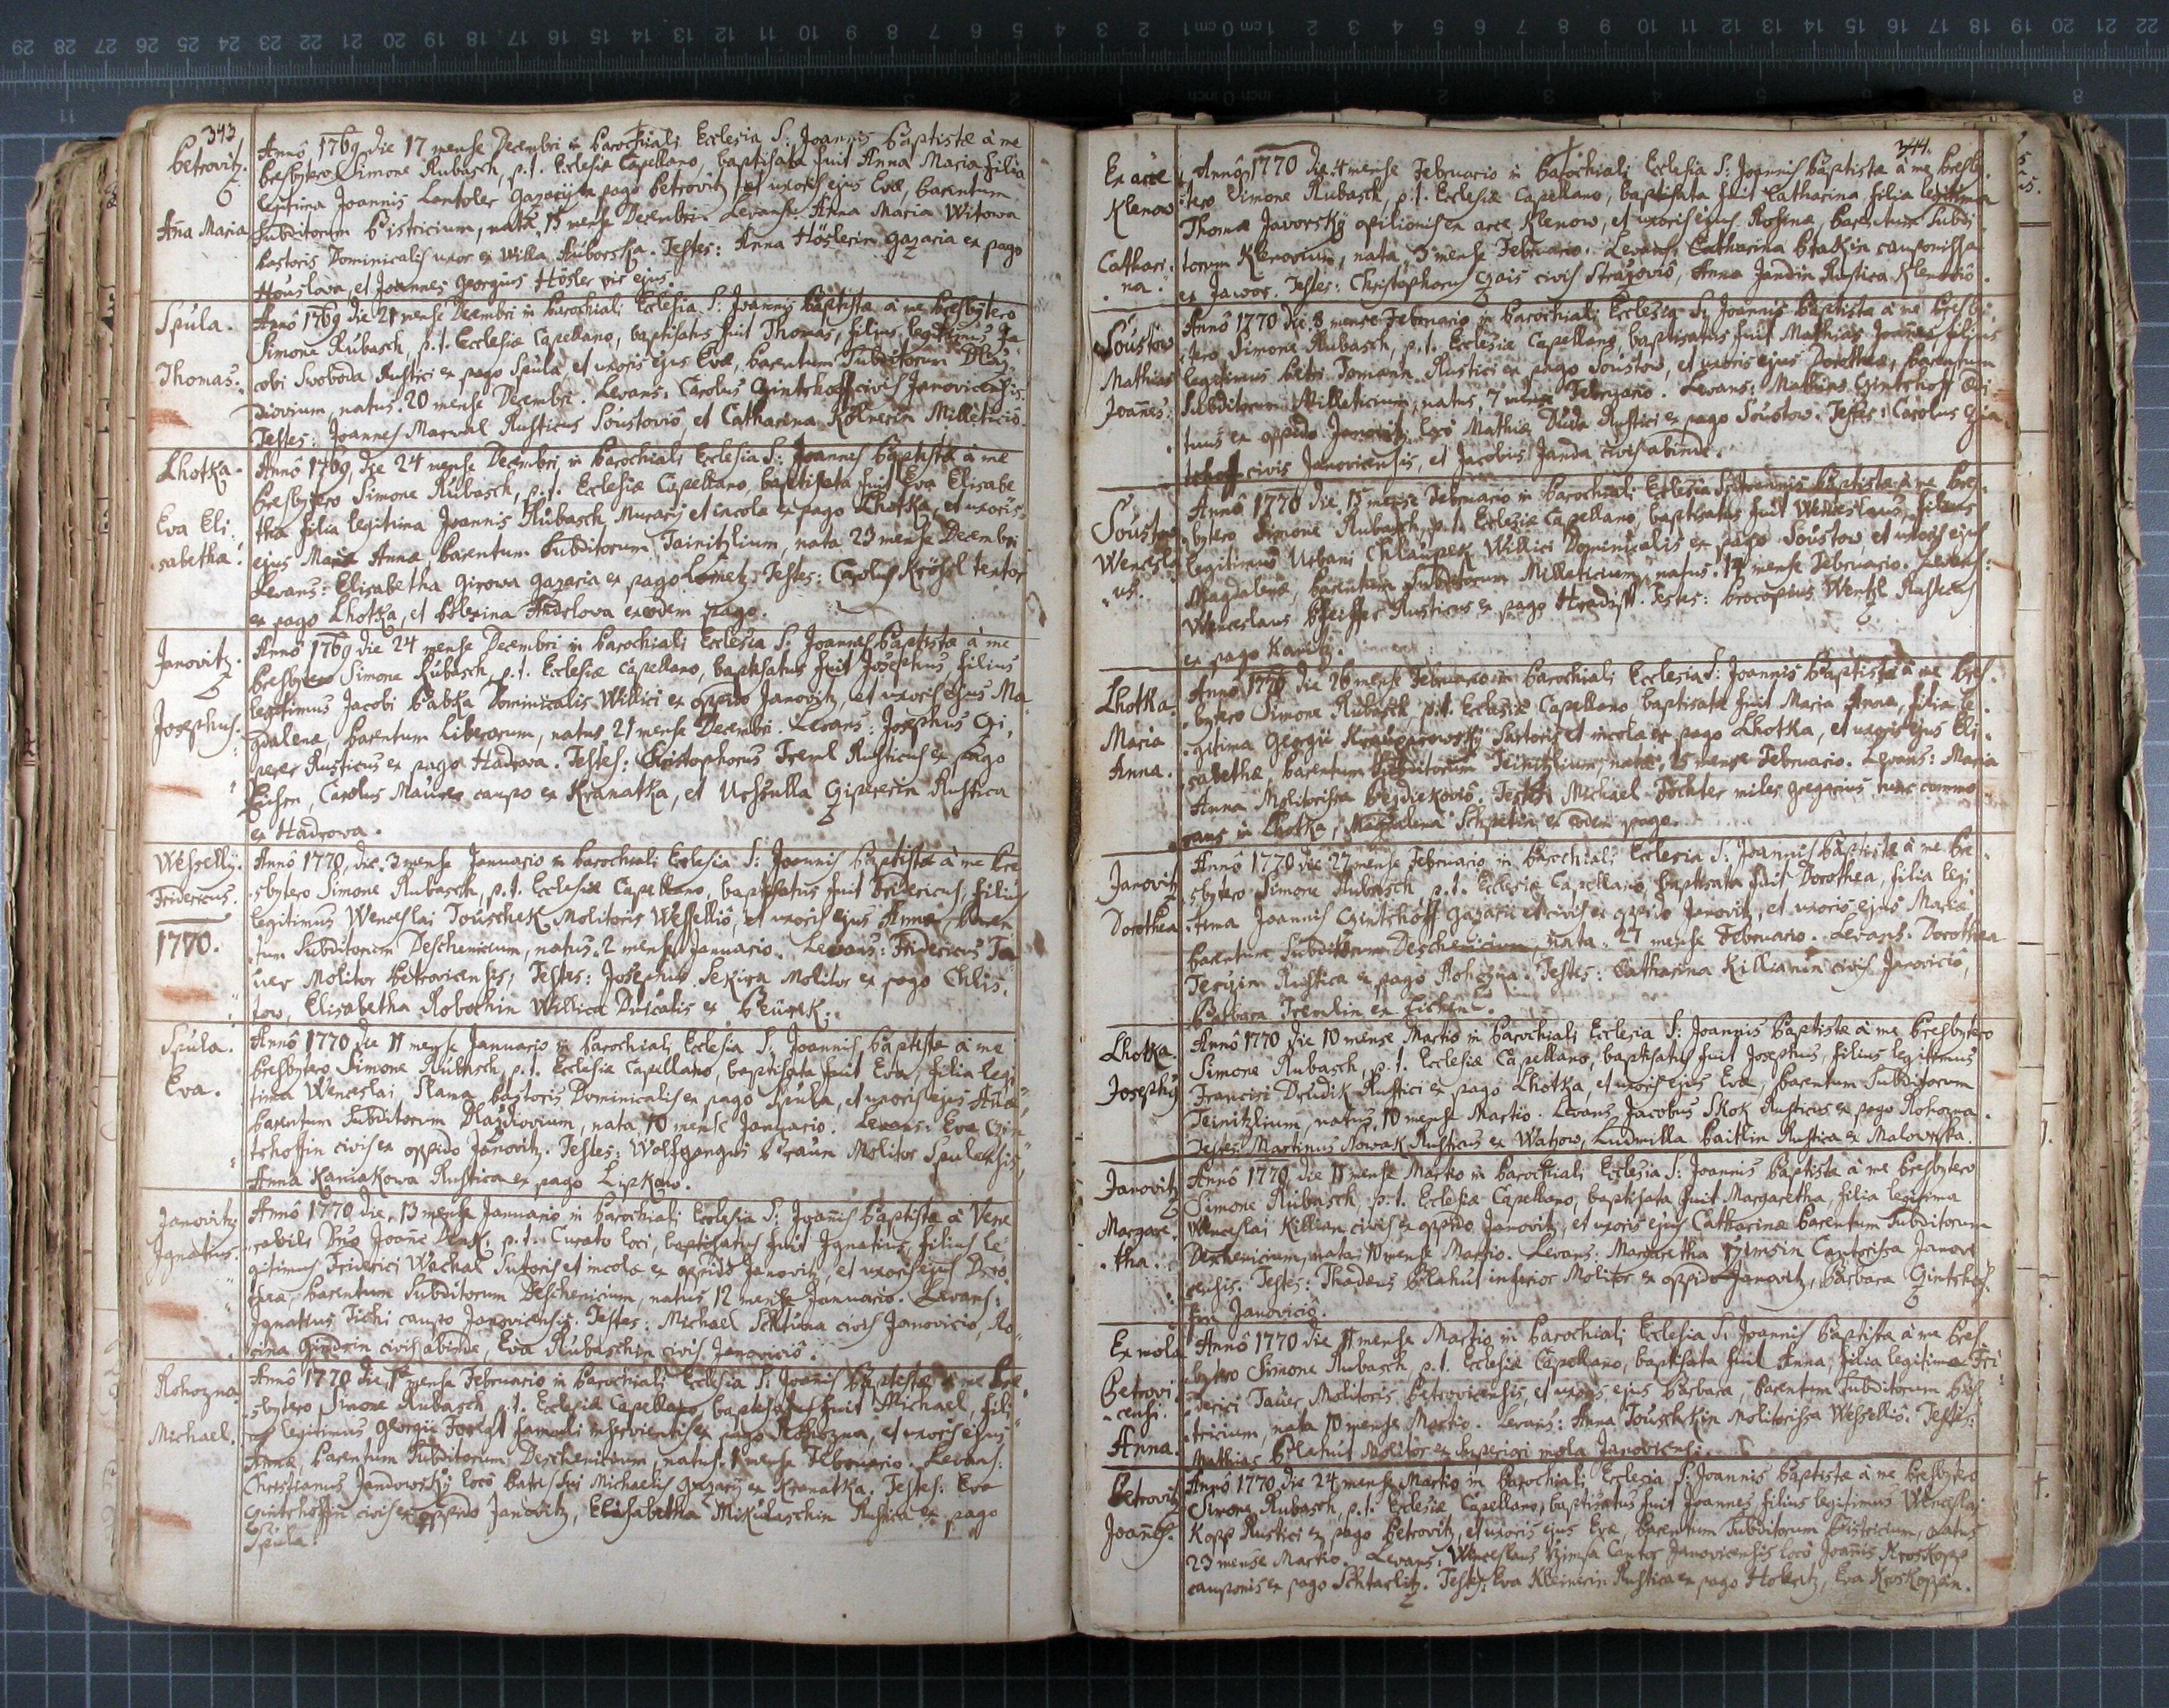 343
Petrovitz.
Aña Maria
Annô 1769 die 17 mense Decembri in Parochiali Ecclesia S: Joannis Baptistæ à me
Presbytero Simone Rubasch, p.t. Ecclesiæ Capellano, baptisata fuit Anna Maria filia
legitima Joannis Lantoler gazarij ex pago Petrovitz et uxoris ejus Evæ, Parentum
Subditorum Bistricium, nata 15 mense Decembri. Levans: Anna Maria Witowa
Pastoris Dominicalis uxor ex Villa Ruborska. Testes: Anna Höslerin gazaria ex pago
Houslava, et Joannes Georgius Hösler vir ejus.
Spula.
Thomas.
Annô 1769 die 21 mense Decembri in Parochiali Ecclesia S: Joannis Baptistæ à me Presbytero
Simone Rubasch, p.t. Ecclesiæ Capellano, baptisatus fuit Thomas, filius legitimus Ja
cobi Swoboda Rustici ex pago Spula, et uxoris ejus Evæ, Parentum Subditorum Dlaz
diovium, natus 20 mense Decembri. Levans: Carolus Gintshoff civis Janovicensis.
Testes: Joannes Marwal Rusticus Soustoviô et Catharina Kölnerin Milleticiô.
Lhotka.
Eva Eli
sabetha.
Annô 1769, die 24 mense Decembri in Parochiali Ecclesia S: Joannis Baptistæ à me
Presbytero Simone Rubasch, p.t. Ecclesiæ Capellano, baptisata fuit Eva Elisabe
tha filia legitima Joannis Rubasch Murarij et incola ex pago Lhotka, et uxoris
ejus Mariæ Annæ Parentum Subditorum Teinitzlium, nata 23 mense Decembri
Levans: Elisabetha Girowa gazaria ex pago Lometz. Testes: Carolus Krössl textor
ex pago Lhotka, et Polexina Fidrlova ex eodem pago.
Janovitz.
Josephus.
Annô 1769 die 24 mense Decembri in Parochiali Ecclesia S: Joannis Baptistæ à me
Presbytero Simone Rubasch, p.t. Ecclesiæ Capellano, baptisatus fuit Josephus, filius
legitimus Jacobi Babka Dominicalis Willici ex oppido Janovitz, et uxoris ejus Ma
gdalenæ, Parentum Liberorum, natus 21 mense Decembri. Levans: Josephus Gi
perer Rusticus ex pago Hadrova. Testes: Christophorus Treml Rusticus ex pago
Eichen, Carolus Maurer caupo ex Kramatka, et Urssulla Gipererin Rustica
ex Hadrowa.
Wesselly.
Fridericus.
1770.
Annô 1770, die 3 mense Januario in Parochiali Ecclesia S: Joannis Baptistæ à me Pre
sbytero Simone Rubasch, p.t. Ecclesiæ Capellano, baptisatus fuit Fridericus, filius
legitimus Wenceslai Touschek Molitoris Wesselliô, et uxoris ejus Annæ Paren
tum Subditorum Deschenicium, natus 2 mense Januario. Levans: Fridericus Ta
uer Molitor Petrovicensis, Testes: Josephus Sekira Molitor ex pago Chlis
tow, Elisabetha Robothin Willica Ducalis ex Peürek.
Spula.
Eva.
Annô 1770 die 11 mense Januario in Parochiali Ecclesia S: Joannis Baptistæ à me
Presbytero Simone Rubasch, p.t. Ecclesiæ Capellano, baptisata fuit Eva, filia legi
tima Wenceslai Slama Pastoris Dominicalis ex pago Spula, et uxoris ejus Annæ
Parentum Subditorum Dlazdiovium, nata 10 mense Januario. Levans: Eva Gin
tshoffin civis ex oppido Janovitz. Testes: Wolfgangus Braun Molitor Spulensis,
Anna Kaniakowa Rustica ex pago Lipkow.
Janovitz
Ignatius.
Annô 1770 die 13 mense Januario in Parochiali Ecclesia S: Joannis Baptistæ à Vene
rabili Dno Joañe Denk, p.t. Curato loci, baptisatus fuit Ignatius, filius le
gitimus Friderici Wachal Sutoris et incolæ ex oppido Janovitz, et uxoris ejus Doro
theæ, Parentum Subditorum Deschenicium, natus 12 mense Januario. Levans:
Ignatius Tichi caupo Janovicensis. Testes: Michael civis Janoviciô, Ro
cina civis abinde, Eva Rubaschin civis Janoviciô.
Rohozna
Michael.
Annô 1770 die 1 mense Februario in Parochiali Ecclesia S: Joañis Baptistæ à me Pre
sbytero Simone Rubasch p.t. Ecclesiæ Capellano, baptisatus fuit Michael, fili
us legitimus Georgii famuli inservientis ex pago Rohozna, et uxoris ejus
Annæ, Parentum Subditorum Deschenicium, natus 1 mense Februario. Levans:
Christianus Jandowsky locô Patris sui Michaelis gazarij ex Kramatka. Testes: Eva
Gintshoffin civis ex oppido Janovitz, Elisabetha Mikulaschin Rustica ex pago
Spula.
344.
Ex arce
Klenow
Cathari
na.
Annô 1770 die 4 mense Februario in Parochiali Ecclesia S: Joannis Baptistæ à me Presby
tero Simone Rubasch, p.t. Ecclesiæ Capellano, baptisata fuit Catharina, filia legitima
Thomæ Javorsky opilionis ex arce Klenow, et uxoris ejus Rosinæ, Parentum Subdi
torum Klenovium, nata 3 mense Februario. Levans: Catharina cauponissa
ex Jawor. Testes: Christophorus Czais civis Strazoviô, Anna Jandin Rustica Klenoviô.
Soustow
Mathias
Joañes.
Annô 1770 die 8 mense Februario in Parochiali Ecclesia S: Joannis Baptistæ à me Presby
tero Simone Rubasch, p.t. Ecclesiæ Capellano, baptisatus fuit Mathias Joañes, filius
legitimus Petri Tomann Rustici ex pago Soustow, et uxoris ejus Dorotheæ, Parentum
Subditorum Milleticium, natus 7 mense Februario. Levans: Mathias Gintshoff Ædi
tuus ex oppido Janovitz locô Mathiæ Duda Rustici ex pago Soustow. Testes: Carolus Gin
tshoff civis Janovicensis, et Jacobus Janda civis abinde.
Soustow
Wencesla
us.
Annô 1770 die 15 mense Februario in Parochiali Ecclesia S: Joannis Baptistæ à me Pres
bytero Simone Rubasch, p.t. Ecclesiæ Capellano, baptisatus fuit Wenceslaus, filius
legitimus Urbani Chlaupek Willici Dominicalis ex pago Soustow, et uxoris ejus
Magdalenæ, Parentum Subditorum Milleticium, natus 14 mense Februario. Levans:
Wenceslaus Pfeiffer Rusticus ex pago Hradist. Testes: Procopius Wentzl Rusticus
ex pago
Lhotka
Maria
Anna.
Annô 1770 die 26 mense Februario in Parochiali Ecclesia S: Joannis Baptistæ à me Pres
bytero Simone Rubasch, p.t. Ecclesiæ Capellano baptisata fuit Maria Anna, filia le
gitima Georgii Sartoris et incolæ ex pago Lhotka, et uxoris ejus Eli
sabethæ, Parentum Subditorum Teinitzlium nata 25 mense Februario. Levans: Maria
Anna Molitorissa Bezdiekoviô. Testes: Michael Töchter miles gregarius tunc commo
rans in Lhotka, Magdalena ex eodem pago.
Janovitz
Dorothea
Annô 1770 die 27 mense Februario in Parochiali Ecclesia S: Joannis Baptistæ à me Pre
sbytero Simone Rubasch p.t. Ecclesiæ Capellano, baptisata fuit Dorothea, filia legi
tima Joannis Gintshoff gazarii et civis ex oppido Janovitz, et uxoris ejus Mariæ
Parentum Subditorum Deschenicium, nata 27 mense Februario. Levans: Dorothea
Rustica ex pago Rohozna. Testes: Catharina Killianin civis Janoviciô,
Barbara Tremlin ex Eichen.
Lhotka.
Josephus
Annô 1770 die 10 mense Martio in Parochiali Ecclesia S: Joannis Baptistæ à me Presbytero
Simone Rubasch, p.t. Ecclesiæ Capellano, baptisatus fuit Josephus, filius legitimus
Francisci Drudik Rustici ex pago Lhotka, et uxoris ejus Evæ, Parentum Subditorum
Teinitzlium, natus 10 mense Martio. Levans Jacobus Skok Rusticus ex pago Rohozna.
Testes: Martinus Nowak Rusticus ex Watzow, Ludmilla Paitlin Rustica ex Malowska.
Janovitz
Margare
tha.
Annô 1770, die 11 mense Martio in Parochiali Ecclesia S: Joannis Baptistæ à me Presbytero
Simone Rubasch, p.t. Ecclesiæ Capellano, baptisata fuit Margaretha, filia legitima
Wenceslai Killian civis ex oppido Janovitz, et uxoris ejus Catharinæ Parentum Subditorum
Deschenicium, nata 10 mense Martio. Levans: Margaretha Rzimsin Cantorissa Janovi
censis. Testes: Thadæus Blahut inferior Molitor ex oppido Janovitz, Barbara Gintshof
fin Janoviciô.
Ex mola
Petrovi
censi.
Anna.
Annô 1770 die 11 mense Martio in Parochiali Ecclesia S: Joannis Baptistæ à me Pres
bytero Simone Rubasch, p.t. Ecclesiæ Capellano, baptisata fuit Anna, filia legitima Fri
derici Tauer, Molitoris Petrovicensis, et uxoris ejus Barbaræ, Parentum Subditorum Bis
tricium, nata 10 mense Martio. Levans: Anna Touschkin Molitorissa Wesselliô. Testis:
Mathias Blahut Molitor ex Superiori mola Janovicensi.
Petrovitz
Joañes.
Annô 1770 die 24 mense Martio in Parochiali Ecclesia S: Joannis Baptistæ à me Presbytero
Simone Rubasch, p.t. Ecclesiæ Capellano, baptisatus fuit Joannes, filius legitimus Wenceslai
Kopp Rustici ex pago Petrovitz, et uxoris ejus Evæ, Parentum Subditorum Bistricium, natus
23 mense Martio. Levans: Wenceslaus Rzimsa Cantor Janovicensis locô Joannis Kroskopp
cauponis ex pago Schtarlitz. Testes: Eva Kleinerin Rustica ex pago Holletitz, Eva Kroskoppin.